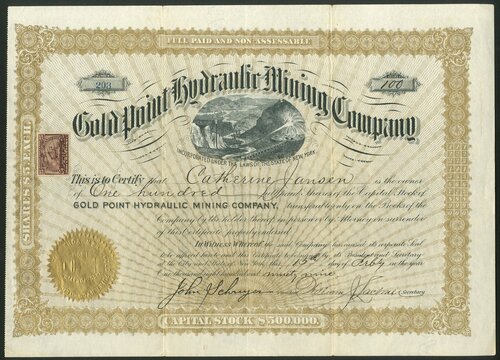 FULL PAID AND NON-ASSESSABLE
203
100
Gold Point Hydraulic Mining Company
INCORPORATED UNDER THE LAWS OF THE STATE OF NEW YORK
SHARES $5 EACH.
This is to Certify that Catherine Jansen is the owner
of One hundred Shares of the Capital Stock of
GOLD POINT HYDRAULIC MINING COMPANY, transferable only on the Books of the
Company by the holder thereof in person or by Attorney on surrender
of this Certificate properly endorsed.
In Witness Whereof the said Company has caused its corporate Seal
to be affixed hereto and this Certificate to be signed by its President and Secretary
at the City and State of New York, this 15th day of in the year
One thousand eight hundred and ninety nine.
John
Secretary
CAPITAL STOCK $500,000.